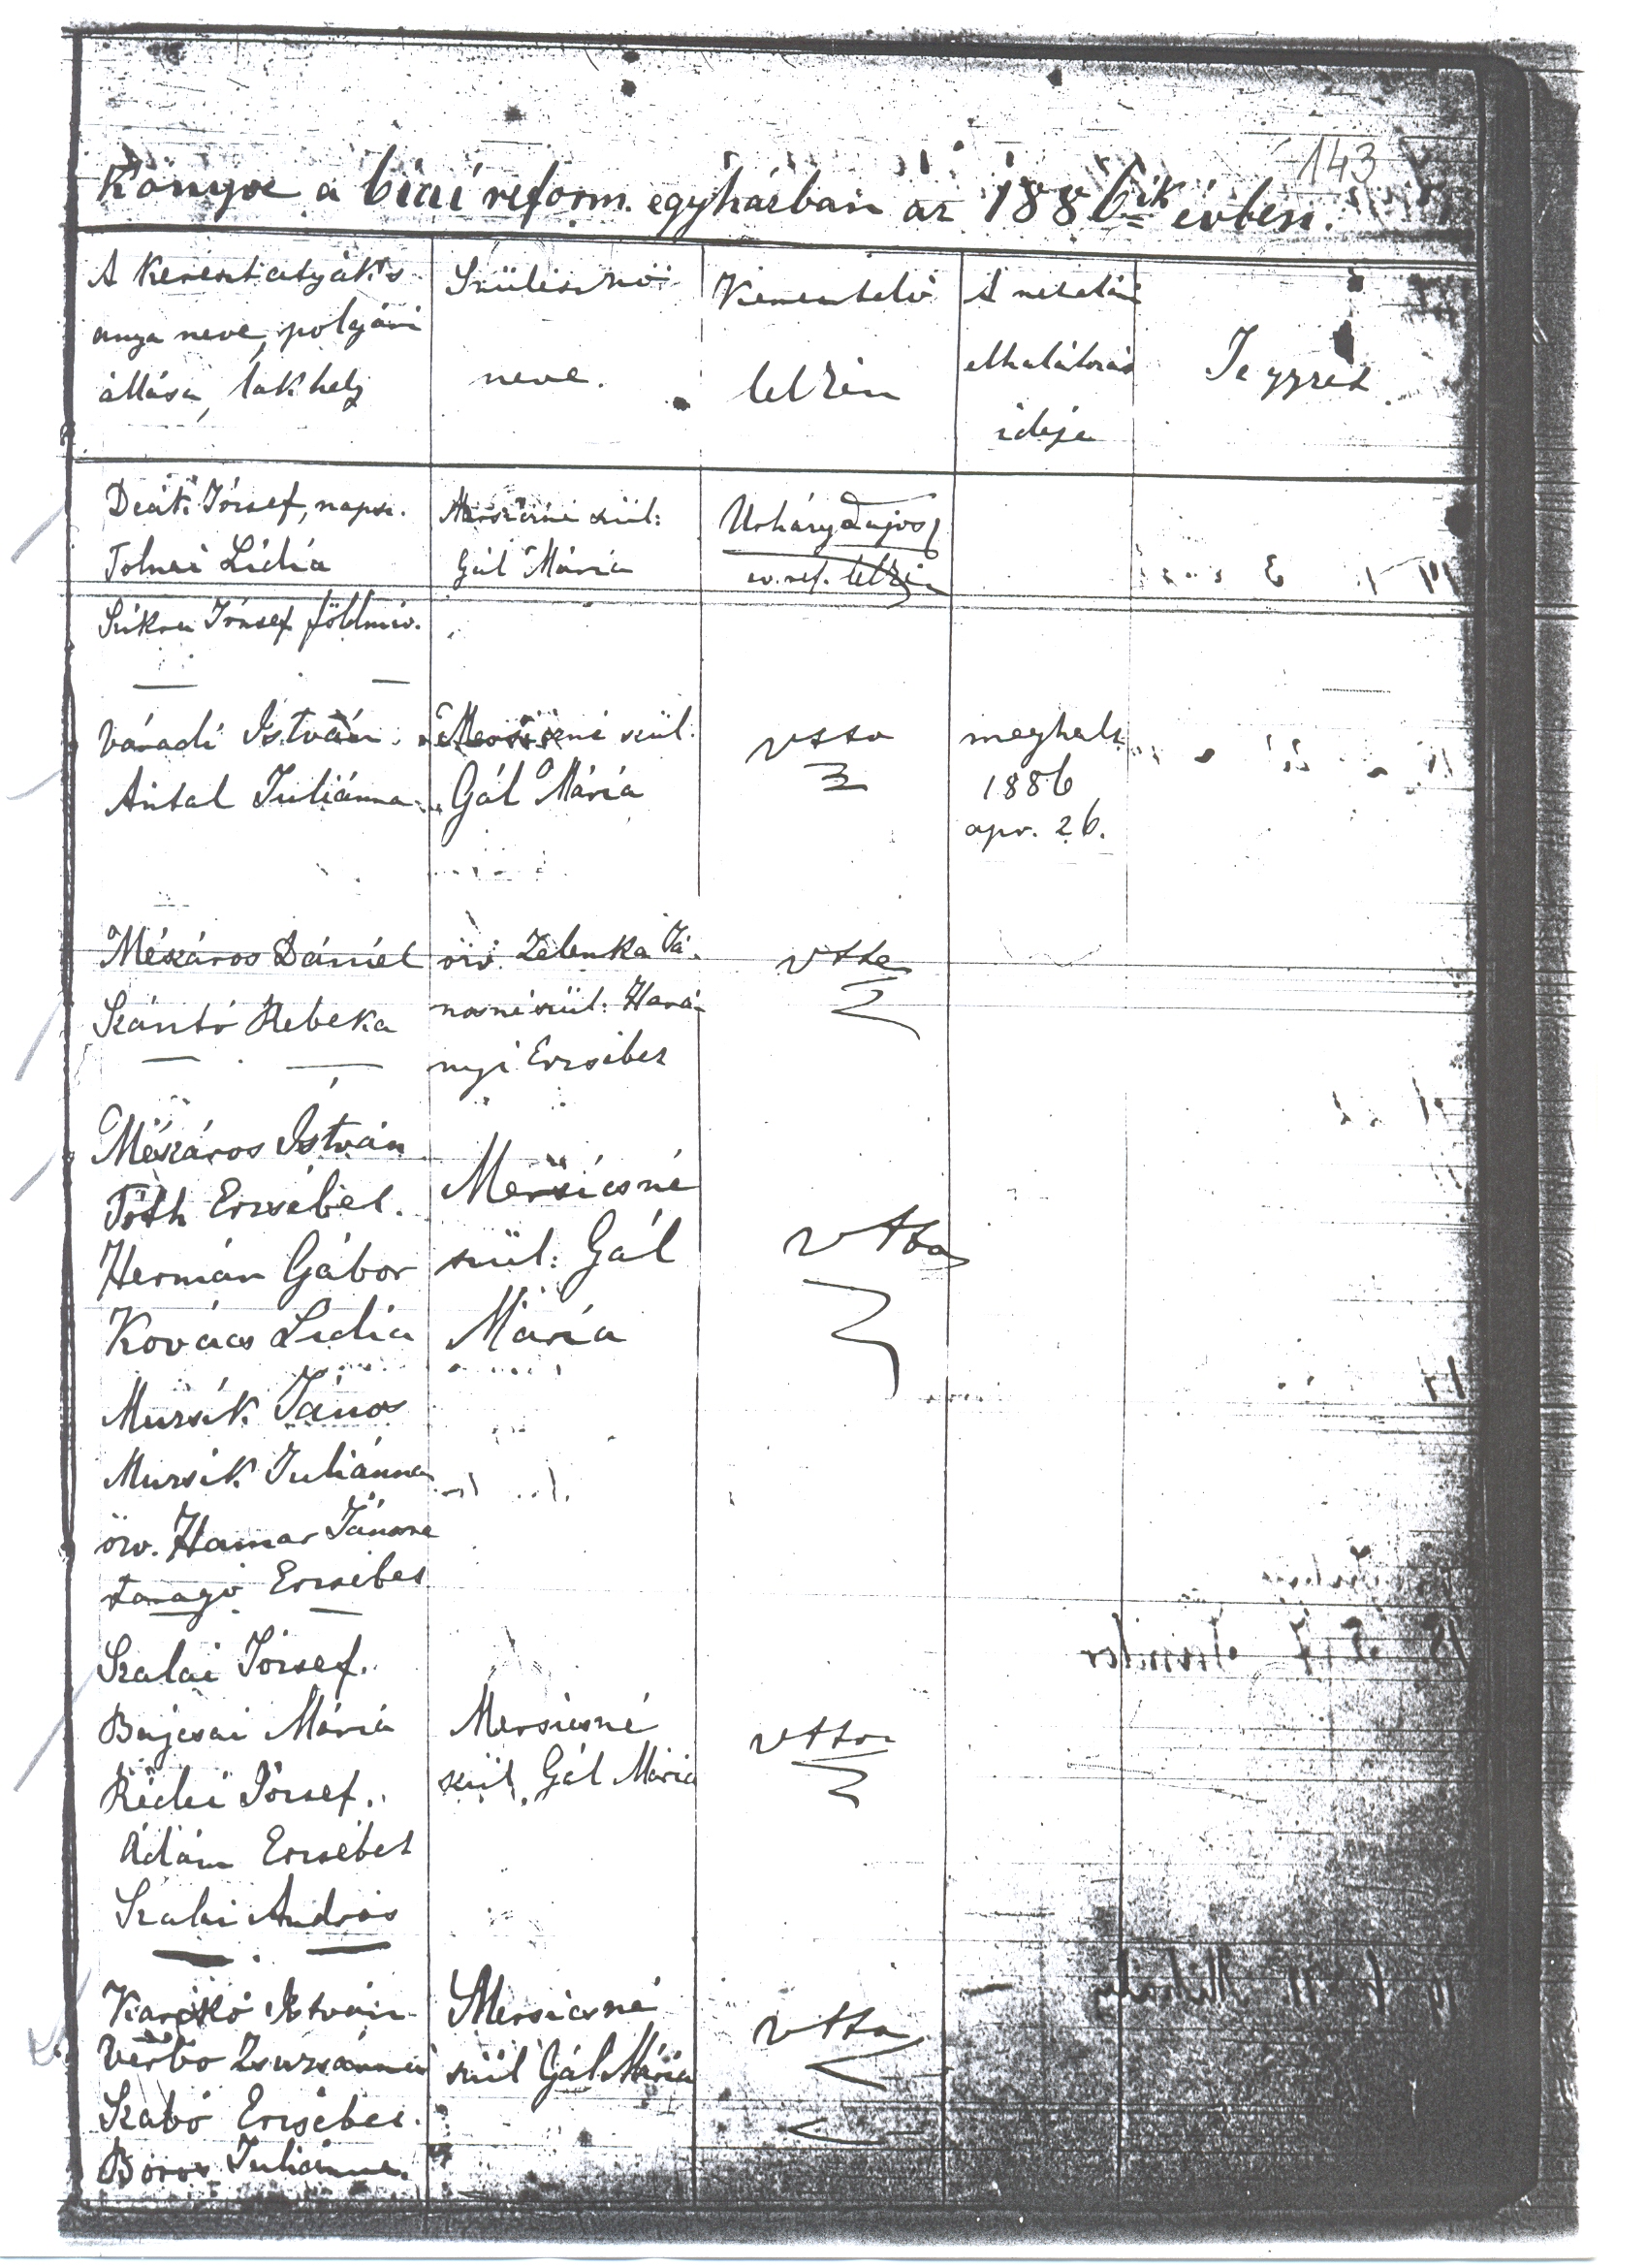 143
Könyve a biai reform. egyházban az 1886ik évben.
A keresztatyák s
anya neve, polgári
állása, lakhely
Szülésznő
neve.
Keresztelő
lelkész
A netaláni
elhalálozás
ideje
Jegyzet
Deák József, naps.
Tolnai Lidia
szül:
Gál Mária
Urhány Lajos
ev. ref. lelkész
József földmív.
Váradi István
Antal Juliánna
Mersicsné szül.
Gál Mária
meghalt
1886
apr. 26.
Mészáros Dániel
Szántó Rebeka
özv. Zelenka Já-
nosné szül: Hará-
nyi Erzsébet
Mészáros István
Tóth Erzsébet.
Hermán Gábor
Kovács Lidia
Mersicsné
szül: Gál
Mária
Mursik János
Mursik Juliánna
özv. Hamar Jánosné
Erzsébet
Szalai József.
Bajcsai Mária
Rédei József.
Ádám Erzsébet
Szalai András
Mersicsné
szül. Gál Mária
István
Zsuzsánna
Szabó Erzsébet.
Boros Juliánna.
Mersicsné
szül Gál Mária